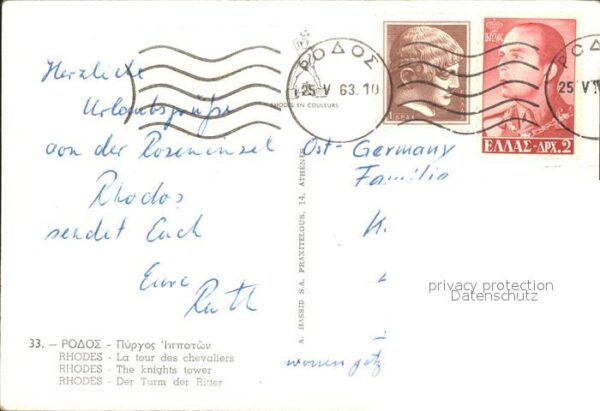 Herzliche
Urlaubsgrüße
von der Roseninsel
Rhodos
sendet Euch
Eure
Ruth
33. — ΡΟΔΟΣ - Πύργος Ἱπποτῶν
RHODES - La tour des chevaliers
RHODES - The knights tower
RHODES - Der Turm der Ritter
RHODES EN COULEURS
A. HASSID S.A. PRAXITELOUS, 14, ATHÈNES
ΡΟΔΟΣ
25 V 63.10
ΕΛΛΑΣ-ΔΡΧ.2
25 V
Ost-Germany
Familie
privacy protection
Datenschutz